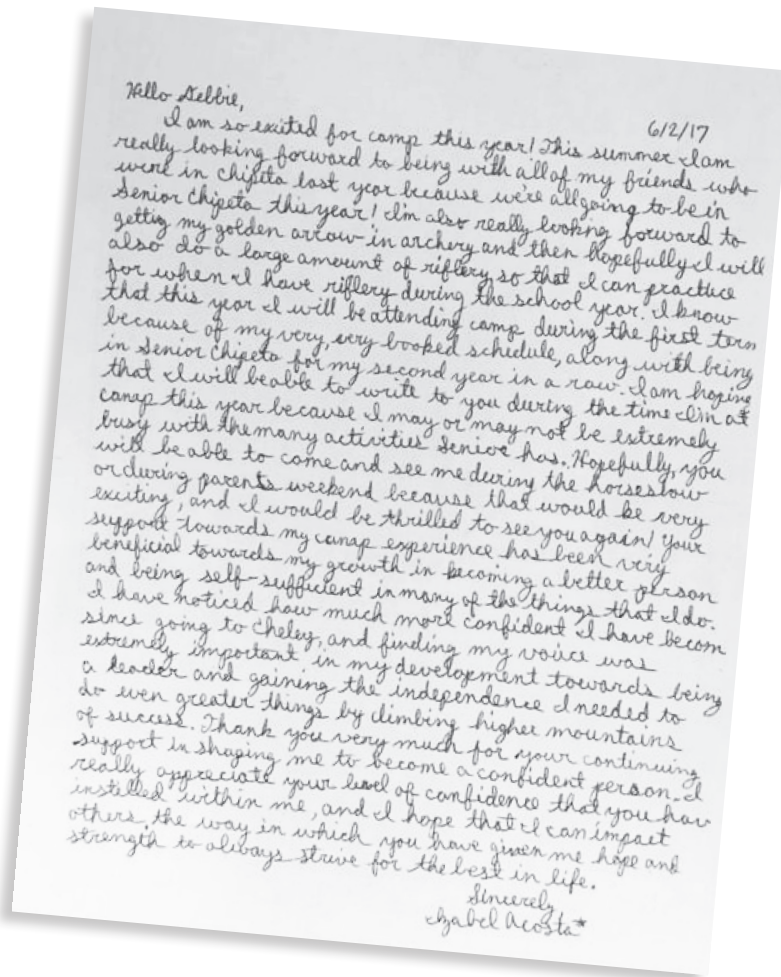 Hello Debbie,
6/2/17
I am so exited for camp this year! This summer I am
really looking forward to being with all of my friends who
were in Chipeta last year because we're all going to be in
Senior Chipeta this year! I'm also really looking forward to
gettig my golden arrow in archery and then hopefully I will
also do a large amount of riflery so that I can practice
for when I have riflery during the school year. I know
that this year I will be attending camp during the first term
because of my very, very booked schedule, along with being
in Senior Chipeta for my second year in a raw. I am hoping
that I will be able to write to you during the time I'm at
camp this year because I may or may not be extremely
busy with the many activities Senior has. Hopefully, you
will be able to come and see me during the horseshow
or during parents weekend because that would be very
exciting, and I would be thrilled to see you again! Your
support towards my camp experience has been very
beneficial towards my growth in becoming a better person
and being self-sufficient in many of the things that I do.
I have noticed how much more confident I have becom
since going to Cheley, and finding my voice was
extremely important in my development towards being
a leader and gaining the independence I needed to
do even greater things by climbing higher mountains
of success. Thank you very much for your continuing
support in shaping me to become a confident person. I
really appreciate your level of confidence that you hav
instilled within me, and I hope that I can impact
others, the way in which you have given me hope and
strength to always strive for the best in life.
Sincerely
Izabel Acosta*